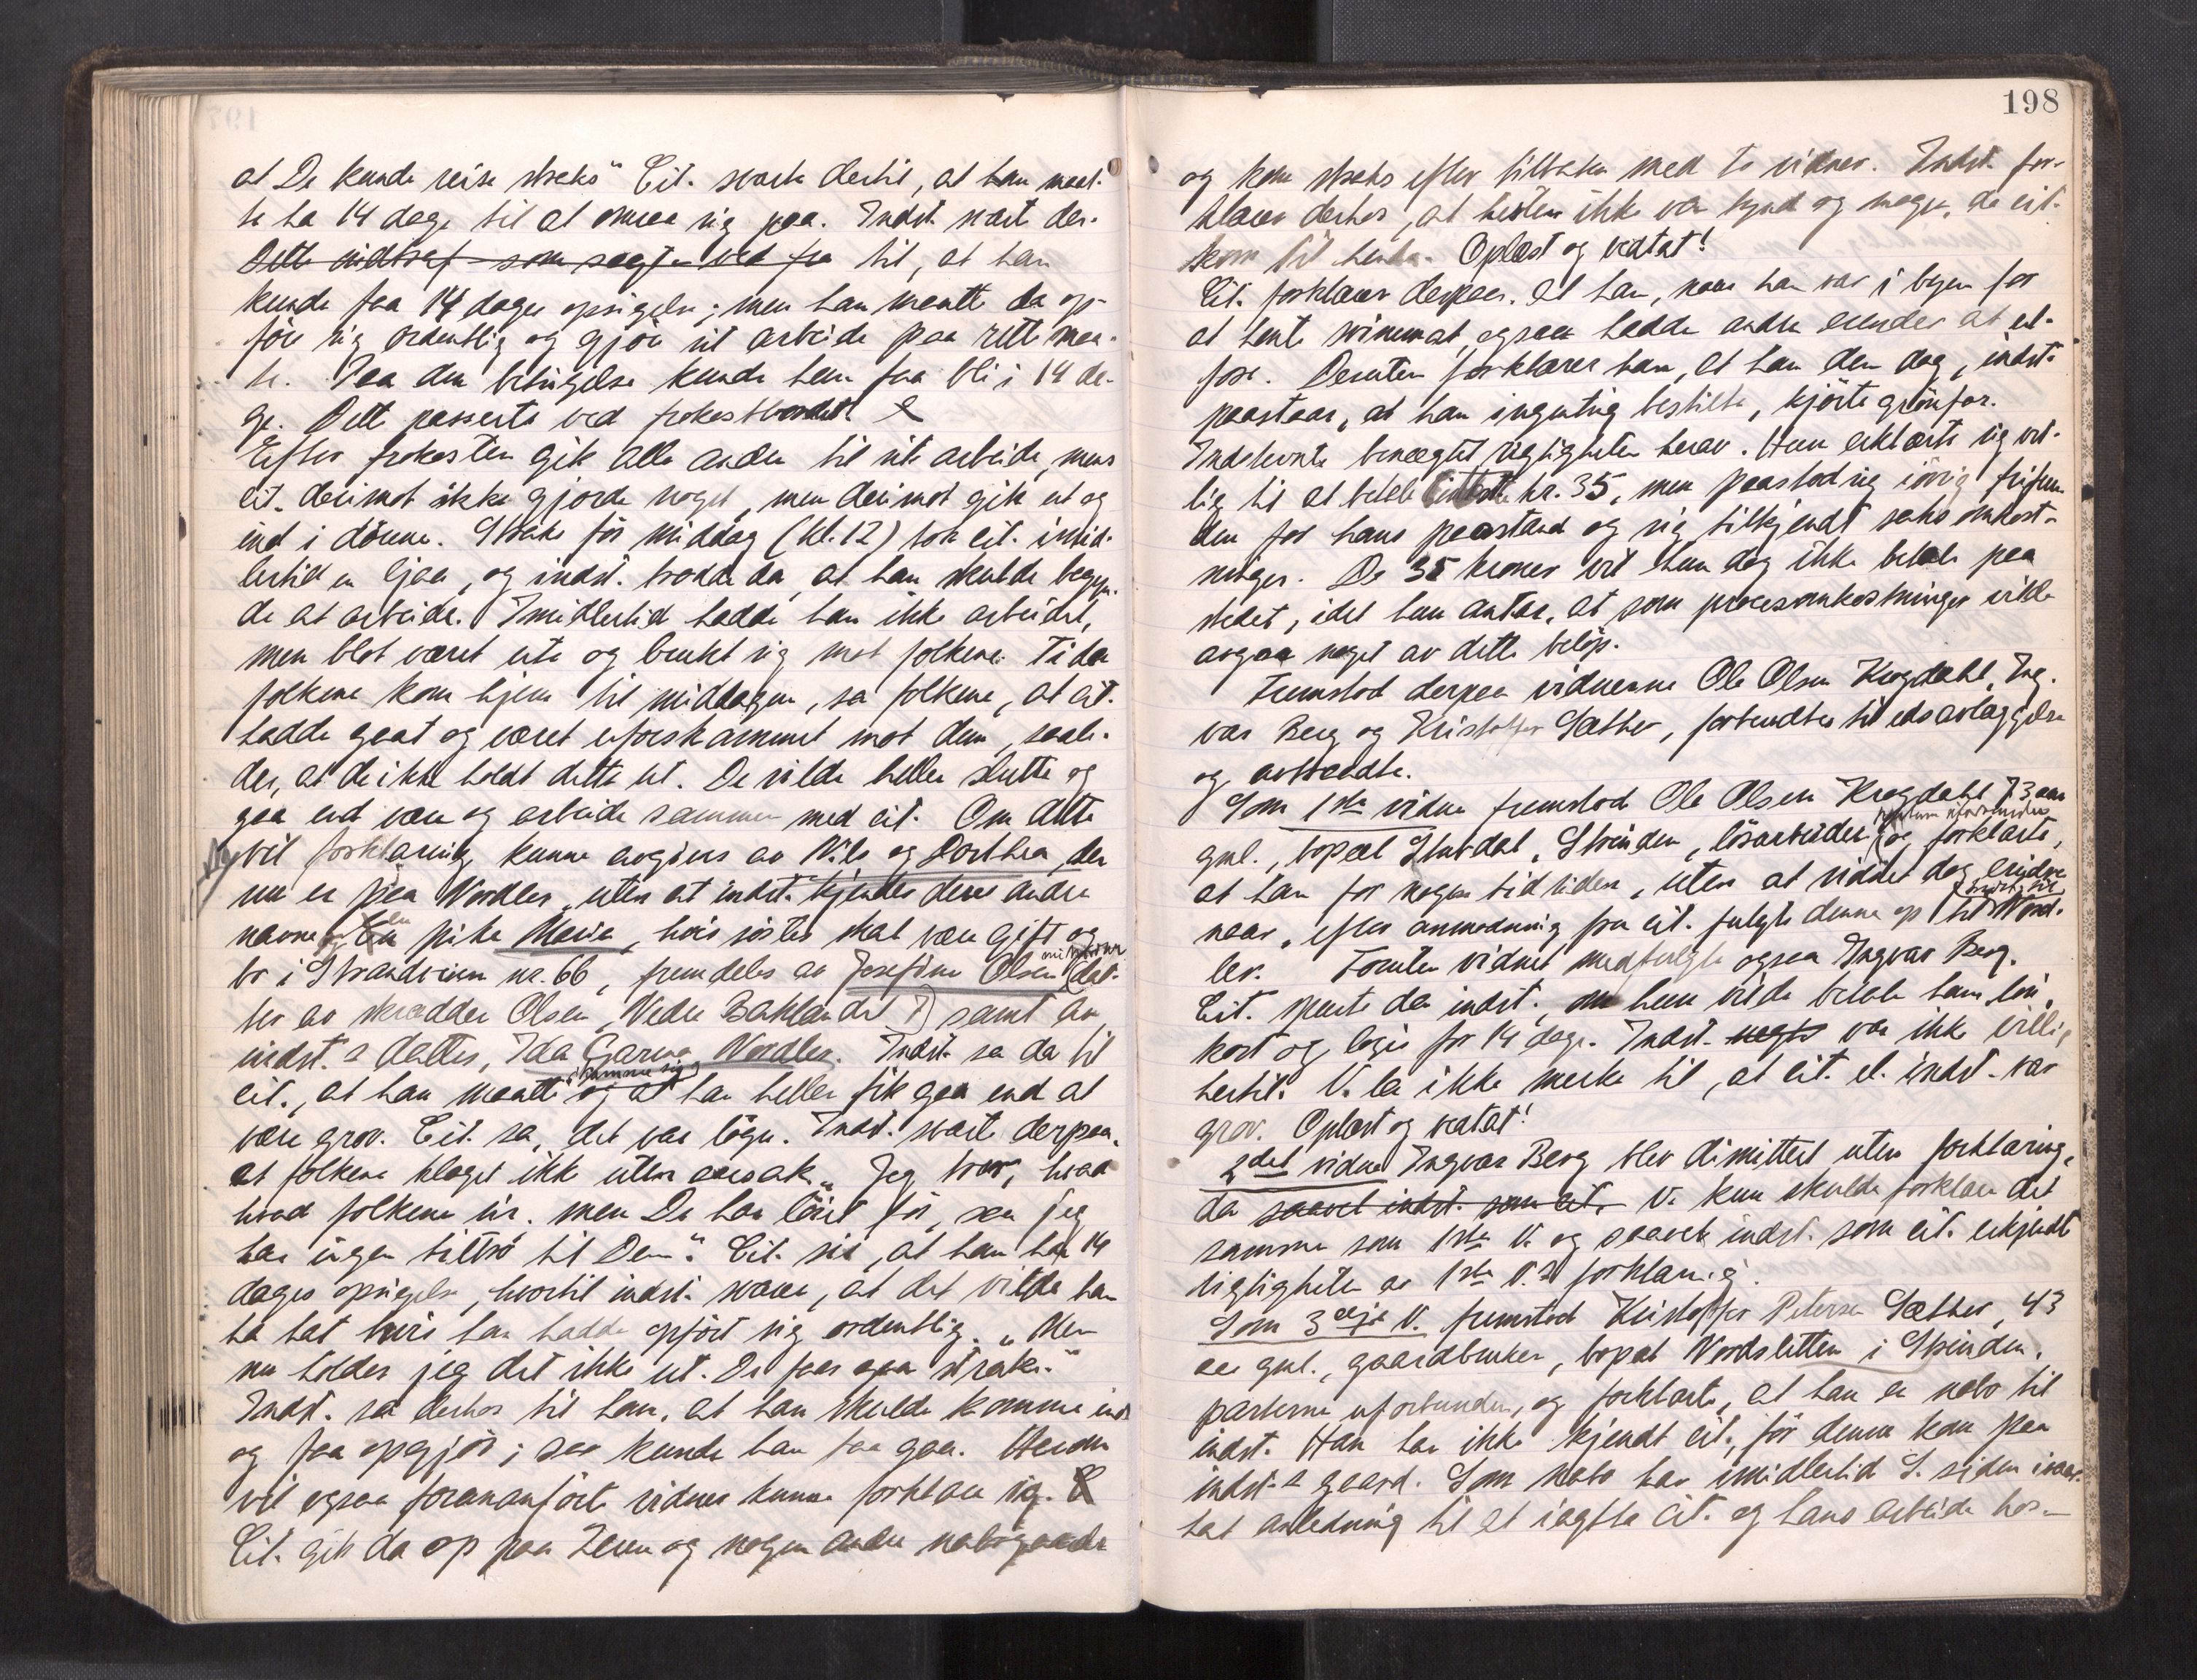 at De kunde reise straks" Cit. svarte dertil, at han maat-
te ha 14 dage til at omsea sig paa. Indst. svart der-
Dette indtraf som sagt ved fro til, at han
kunde faa 14 dages opsigelse; men han maatte da op-
føre sig ordentlig og gjøre sit arbeide paa rette maa-
te. Paa den betingelse kunde han faa bli i 14 da-
ge. Dette passerte ved frokostbordet.
Efter frokosten gik alle andre til sit arbeide, mens
cit. derimot ikke gjorde noget, men derimot gik ut og
ind i dörene. Straks før middag (kl. 12) tok cit. imid-
lertid en ljaa, og indst. trodde da, at han skulde begyn-
de at arbeide. Imidlertid hadde han ikke arbeidet,
men blot været ute og brukt sig mot folkene. Ti da
folkene kom hjem til middagen, sa folkene, at cit.
hadde gaat og været uforskammet mot dem, saale-
des, at de ikke holdt dette ut. De vilde heller slutte og
gaa end være og arbeide sammen med cit. Om dette
vil forklaring kunne avgives av Nils og Dorthea, der
nu er paa Nordlev, uten at indst. kjender deres andre
navne, en pike Maria, hvis søster skal være gift og
bo i Strandveien nr. 66, fremdeles av Josefine Olsen (dat-
ter av skrædder Olsen, Nedre Baklandet ?) samt av
indst.s datter, Ida Garva Nordlev. Indst. sa da til
cit., at han maatte skamme sig og at han heller fik gaa end at
være grov. Cit. sa, det var løgn. Indst. svarte derpaa,
at folkene klaget ikke uten aarsak. "Jeg tror, hvad
hvad folkene sir. men De har løiet før, saa jeg
har ingen tiltro til Dem". Cit. sa, at han har 14
dages opsigelse, hvortil indst. svarer, at det vilde han
ha hat hvis han hadde opført sig ordentlig. "Men
nu holder jeg det ikke ut. De faar gaa straks."
Indst. sa derhos til ham, at han skulde komme ind
og faa opgjør; saa kunde han faa gaa. Herom
vil ogsaa forananførte vidner kunne forklare sig.
Cit. gik da op paa Leren og nogen andre nabogaarde
198
og kom straks efter tilbake med to vidner. Indst. for-
klarer derhos, at hesten ikke var tynd og mager, da cit.
kom til hende. Oplæst og vedtat!
Cit. forklarer derpaa, at han, naar han var i byen for
at hente svinemat, ogsaa hadde andre erender at ut-
føre. Desuten forklarer han, at han den dag, indst.
paastaar, at han ingenting bestilte, kjørte grønfor.
Indstevnte benegtet rigtigheten herav. Hun erklærte sig vil-
lig til at betale kr. 35, men paastod sig iøvrig frifun-
den for hans paastand og sig tilkjendt saks omkost-
ninger. De 35 kroner vil hun dog ikke betale paa
stedet, idet hun antar, at som procesomkostninger vilde
avgaa noget av dette beløp.
Fremstod derpaa vidnerne Ole Olsen Krogdahl, Ing-
var Berg og Kristoffer Sæther, forberedtes til edsavlæggelse
og avtraadte.
Som 1ste vidne fremstod Ole Olsen Krogdahl 73 aar
gml., bopæl Stubdal, Strinden, løsarbeider, partene uforbunden og forklarte,
at han for nogen tid siden, uten at vidnet dog erindrer
naar, efter anmodning fra cit. fulgte denne op til Nord-
lev. Foruten vidnet medfulgte ogsaa Ingvar Berg.
Cit. spurte da indst., om hun vilde betale ham løn,
kost og logis for 14 dage. Indst. var ikke villig
hertil. V. la ikke merke til, at cit. el. indst. var
grov. Oplæst og vedtat!
2det vidne Ingvar Berg blev dimittert uten forklaring,
da saavel indst. som cit. V. kun skulde forklare det
samme som 1ste V. og saavel indst. som cit. erkjendt
rigtigheten av 1ste V.s forklaring.
Som 3edje V. fremstod Kristoffer Petersen Sæther, 43
aar gml., gaardbruker, bopæl Nordsletten i Strinden,
parterne uforbunden, og forklarte, at han er nabo til
indst. Han har ikke kjendt cit., før denne kom paa
indst.s gaard. Som nabo har imidlertid S. siden ivaar
hat anledning til at iagtta cit. og hans arbeide hos